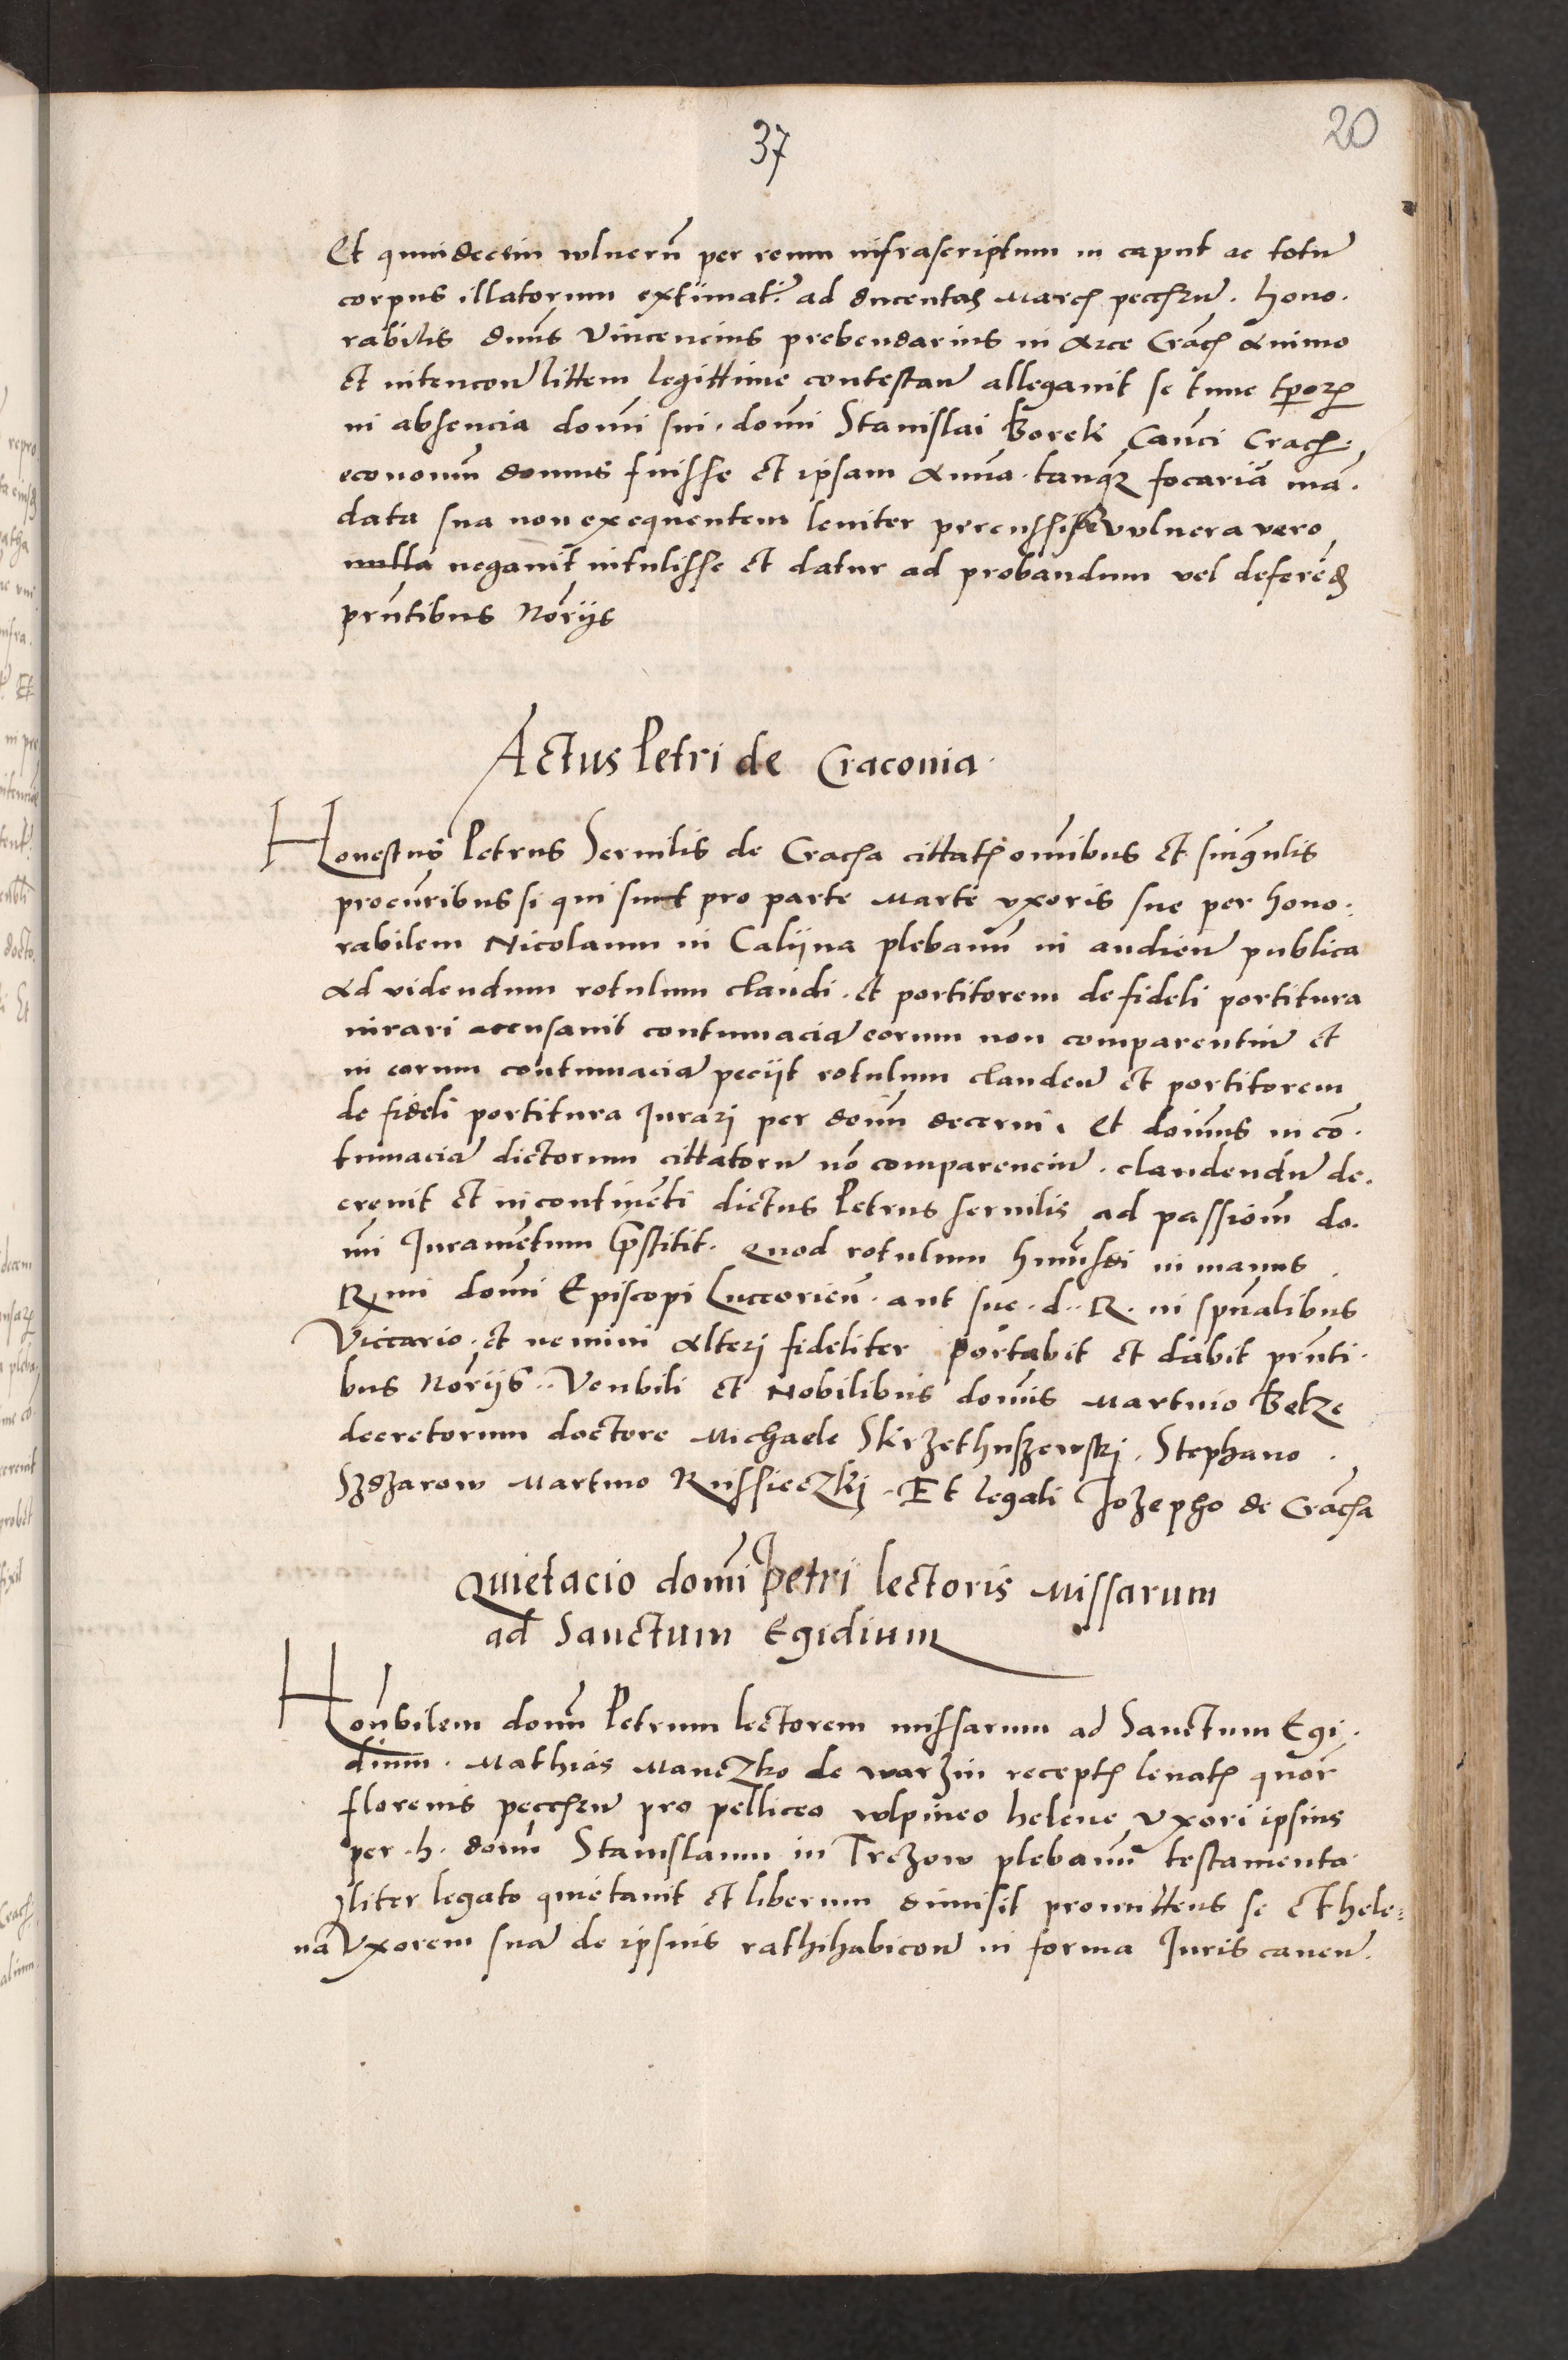 37
20
Et quindecim wlnerũ per reum infrascriptum in caput ac totũ
corpus illatorum extimat. ad ducentas March peccũr. hono.
rabilis dnus Vincencius prebendarius in arce Crach animo
et intencoñ littem legittime contestañ allegauit se tunc tporȝ
in absencia domi sui. domi Stanislai Borek Canci Crach.
economũ domus fuisse et ipsam annã. tanq̃ȝ focariã mã.
data sua non exequentem leuiter percussisse vulnera vero
nulla negauit intulisse et datur ad probandum vel deferẽd
prñtibus Nõrijs
Actus Petri de Cracouia.
Honestus Petrus Seruilis de Cracha cittatis omnibus et singulis
procũribus si qui sunt pro parte Marte vxoris sue per hono.
rabilem Nicolaum in Calijna plebanũ in audieñ publica
ad videndum rotulum claudi. et portitorem de fideli portitura
iurari accusauit contumaciã eorum non comparentiũ et
in eorum contumaciã pecijt rotulum claudeñ et portitorem
de fideli portitura Jurari per doim decerni. Et doinus in cõ.
tumaciã dictorum cittatorũ nõ comparenciũ. claudendũ de.
creuit et in continẽti dictus Petrus seruilis ad passioem do.
mi Juramẽtum prestitit. Quod rotulum hmõi in manus.
Rmi domi Episcopi Luceorieñ. aut sue. d. R. in spũalibus
Viccario. et nemini alteri fideliter portabit et dabit prñti.
bus Nõrijs. Venbili et Nobilibus domis Martino Belze
decretorum doctore Michaele Skrzethuszewski. Stephano.
Szdzarow Martino Russieczki. Et legali Jozepho de Cracha
Quietacio domi Petri lectoris Missarum
ad Sanctum Egidium
Honbilem domũ Petrum lectorem missarum ad Sanctum Egi.
dium. Mathias Maneczko de warzin receptis leuatis quõr
florenis peccũr pro pelliceo wlpineo helene vxori ipsius
per. h. domũ Stanislaum in Trczow plebanũ testamenta
liter legato quietauit et liberum dimisit promittens se et hele=
nã Vxorem suã de ipsius rathihabicoñ in forma Juris caueñ.